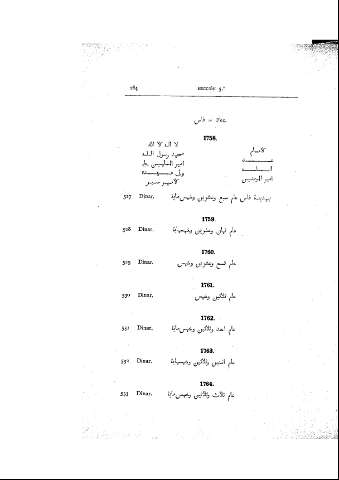 184
فاس = Fez.
1758.
لا اله الا الله
محمد رسول الله
الامام
عبد
الله
امير المومنين
527 Dinar. بمدينة فاس عام سبع وعشرين وخمس ماية
1759.
528 Dinar. عام ثمان وعشرين وخمسماية
1760.
529 Dinar. عام تسع وعشرين وخمس
1761.
530 Dinar. عام ثلاثين وخمس
1762.
531 Dinar. عام احد وثلاثين وخمس ماية
1763.
532 Dinar. عام اثنين وثلاثين وخمسماية
1764.
533 Dinar. عام ثلاث وثلاثين وخمس ماية